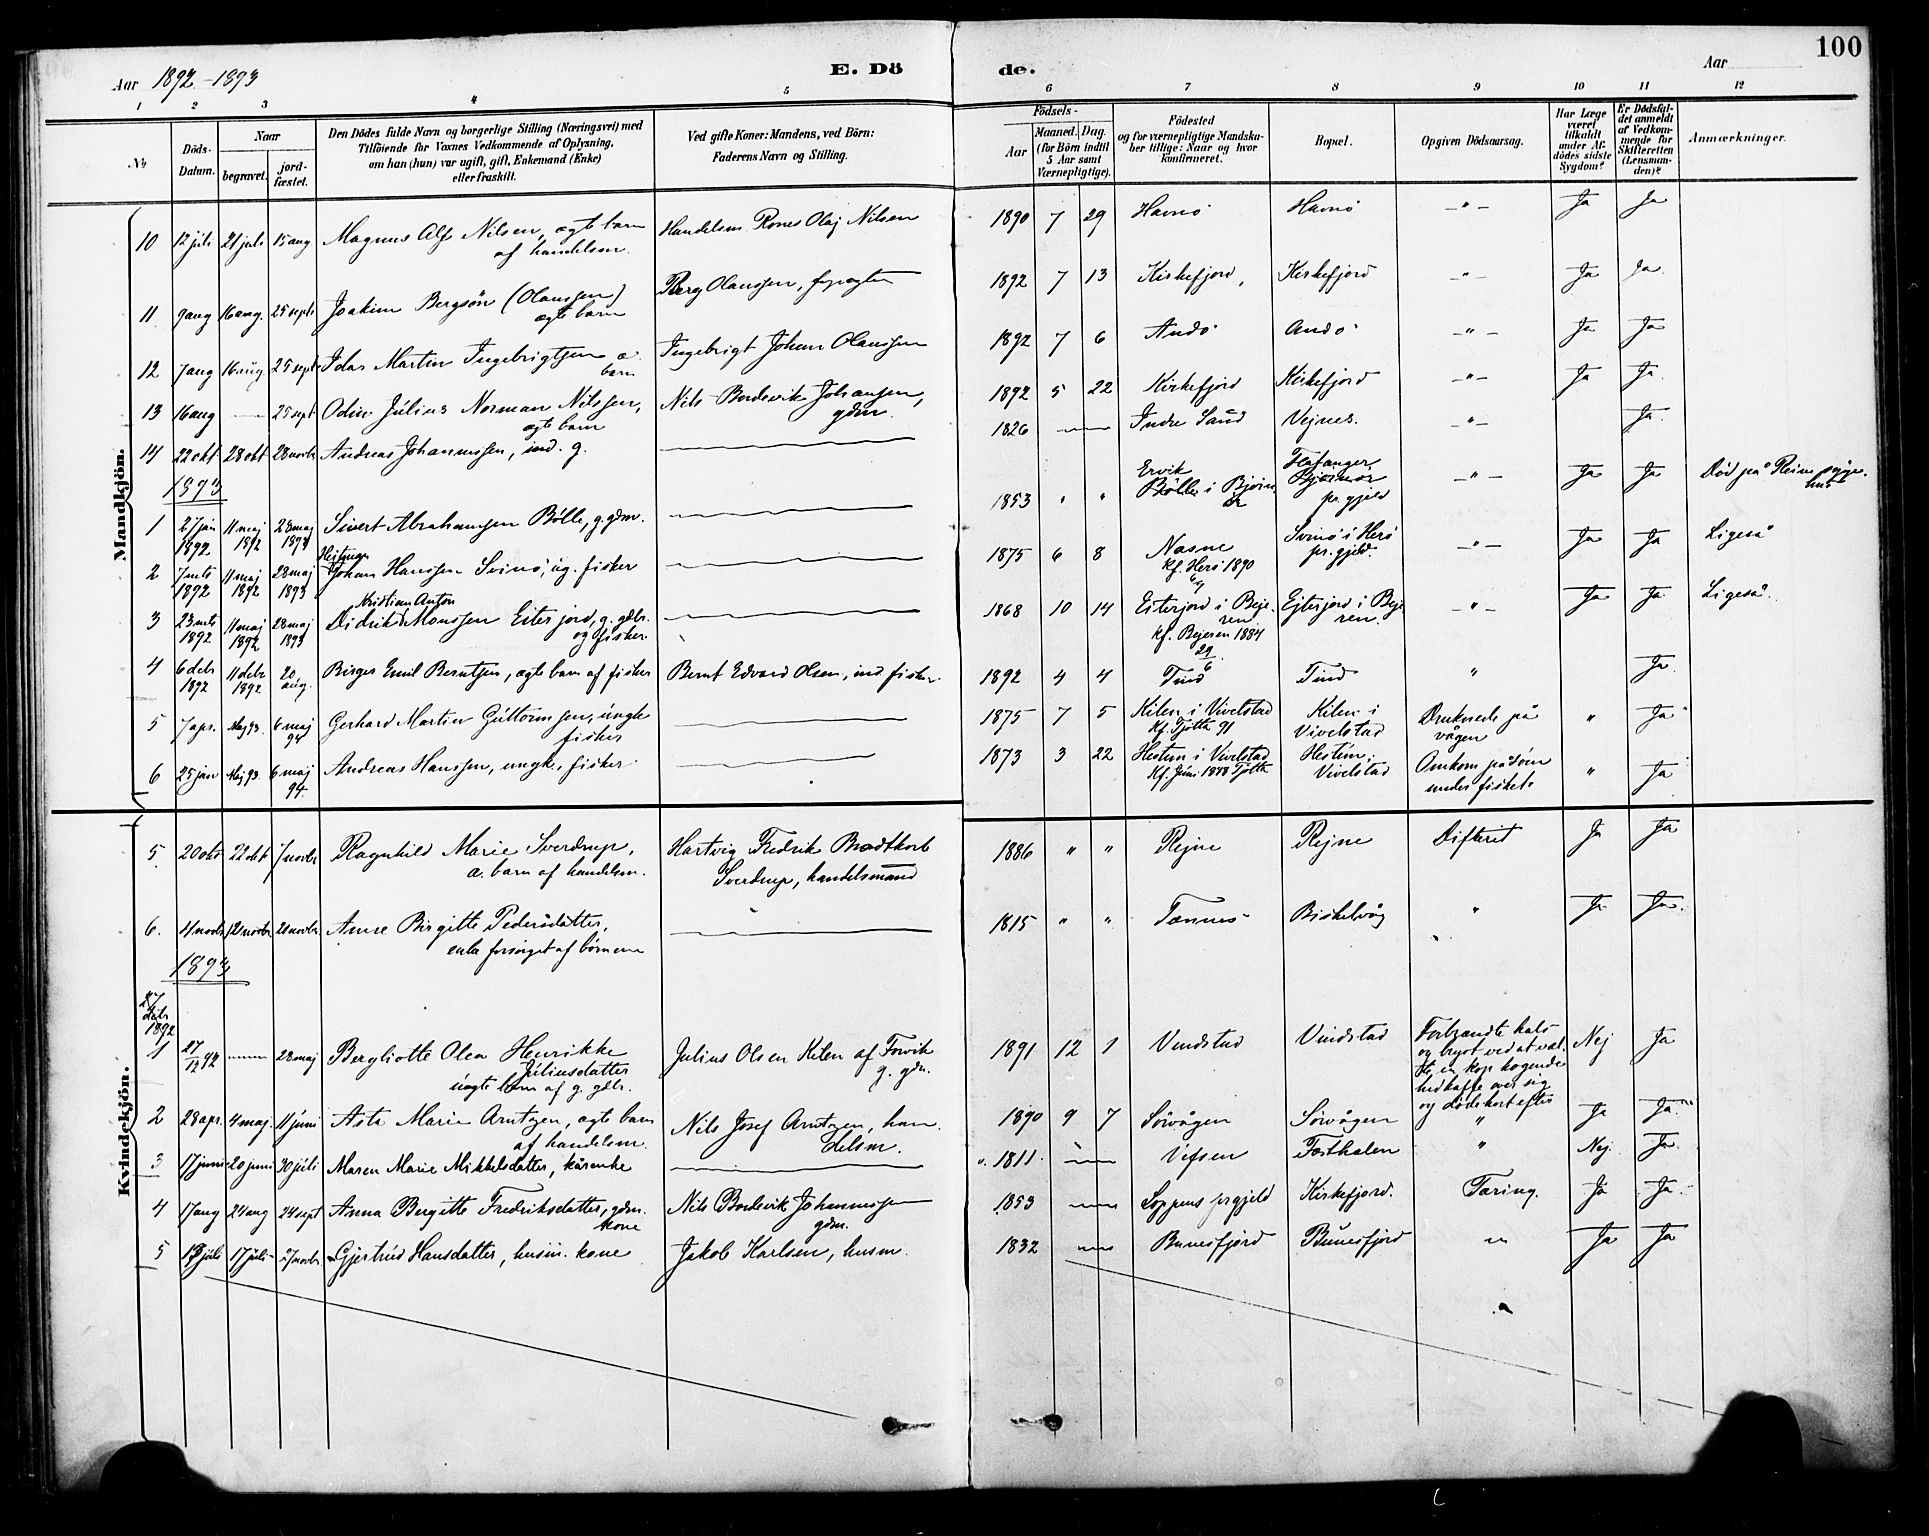 Aar 1892-1893
E. Dö
de.
Aar
100
1 2 3 4 5 6 7 8 9 10 11 12
No
Döds-
Datum.
Naar
begravet.
jord-
fæstet.
Den Dödes fulde Navn og borgerlige Stilling (Næringsvei) med
Tilföiende for Voxnes Vedkommende af Oplysning,
om han (hun) var ugift, gift, Enkemand (Enke)
eller fraskilt.
Ved gifte Koner: Mandens, ved Börn:
Faderens Navn og Stilling.
Födsels-
Aar
Maaned. Dag.
(for Börn indtil
5 Aar samt
Værnepligtige).
Födested
og for værnepligtige Mandska-
ber tillige: Naar og hvor
konfirmeret.
Bopæl.
Opgiven Dödsaarsag.
Har Læge
været
tilkaldt
under Af-
dödes sidste
Sygdom?
Er Dödsfal-
det anmeldt
af Vedkom-
mende for
Skifteretten
(Lensman-
den)?
Anmærkninger.
Mandkjön.
10 12 juli 21 juli 15 aug Magnus Alf Nilsen, ægte barn Handelsm. Rones Olaj Nilsen 1890 7 29 Havnö Havnö -"- Ja Ja
af handelsm.
11 9 aug 16 aug. 25 sept Joakim Bergsön (Olanssen) Berg Olanssen, 1892 7 13 Kirkefjord, Kirkefjord -"- Ja Ja.
ægte barn
12 7 aug 16 aug. 25 sept Idar Martin Ingebrigtsen æ. Ingebrigt Johan Olanssen 1892 7 6 Andö Andö -"- Ja Ja
barn
13 16 aug 25 sept Odin Julius Norman Nilssen, Nils Bordevik Johansen, 1892 5 22 Kirkefjord Kirkefjord -"- Ja Ja.
ægte barn gdm.
14 22 okt 28 okt 28 novbr Andreas Johannssen, ind. g. 1826 Indre Sand Vejnes. -"- Ja.
1893
1 27 jan 11 maj 28 maj Sivert Abrahamsen Bölle, g. gdm. 1853 " " Ervik Flatanger -"- Ja Ja Död på Reine syge-
1892 1892 1893 Bölle i Bjørnör Bjørnör hus
pr.gjeld
2 7 mts 11 maj 28 maj Johan Hanssen Svinö, ug. fisker 1875 6 8 Nasne Svinö i Herö -"- Ja Ja Ligeså
1892 1892 1893 kf. Herö 1890 pr.gjeld.
Kristian Anton
3 23 mts 11 maj 28 maj Didrik Monssen Eiterjord, g. gdbr. 1868 10 14 Eiterjord i Beje- Ejterjord i Beje- -"- Ja Ja Ligeså.
1892 1892 1893 og fisker ren ren.
kf. Bejeren 1884
29/6
4 6 debr 11 debr 20 Birger Emil Berntsen, ægte barn af fisker Bernt Edvard Olsen, ind. fisker 1892 4 4 Tind Tind " Ja.
1892 1892 aug.
5 7 apr. Maj 93. 6 maj Gerhard Martin Guttormsen, ungk. 1875 7 5 Kilen i Vivelstad Kilen i Druknede på " Ja
94 fisker Kf. Tjötta 91 Vivelstad vågen
6 25 jan Maj 93. 6 maj Andreas Hanssen, ungk., fisker 1873 3 22 Hestun i Vivelstad Hestun, Omkom på söen " Ja
94. Kf. Juni 1888 Tjötta Vivelstad under fisket.
Kvindekjön.
5. 20 okt 22 okt 7 novbr Ragnhild Marie Sverdrup, Hartvig Fredrik Bradtkorb 1886 " " Rejne Rejne Difterit Ja Ja
æ. barn af handelsm. Sverdrup, handelsmand
6. 4 novbr 12 novbr 28 novbr Anne Birgitte Pedersdatter, 1815 " " Tennes Biskelvåg " Ja Ja.
enke forsörget af börnene
1893
27
debr
1892
1 27/12 92 28 maj Bergliotte Olea Henrikke Julius Olsen Kilen af Forvik 1891 12 1 Vindstad Vindstad Forbrændte hals Nej Ja
Juliusdatter g. gdm. og bryst ved at væl-
uægte barn af g. gdbr. te en kop kogende
hed kaffe over sig
og döde kort efter
2 28 apr. 4 maj. 11 juni Asta Marie Arntzen, ægte barn Nils Josef Arntzen, han- 1890 9 7 Sörvågen Sörvågen " Ja Ja.
af handelsm. delsm.
3 17 juni 20 juni 30 juli Maren Marie Mikkelsdatter, kårenke 1811 Vefsen " Nej. Ja.
4 17 aug 24 aug 24 sept Anna Bergitte Fredriksdatter, gdm. Nils Bordevik Johannssen 1853 Loppens prgjeld Kirkefjord. Tæring. Ja Ja.
kone gdm.
5 13 juli 17 juli 27 novbr Gjertrud Hansdatter, husm. kone Jakob Karlsen, husm. 1832 Bunesfjord Bunesfjord " Ja Ja